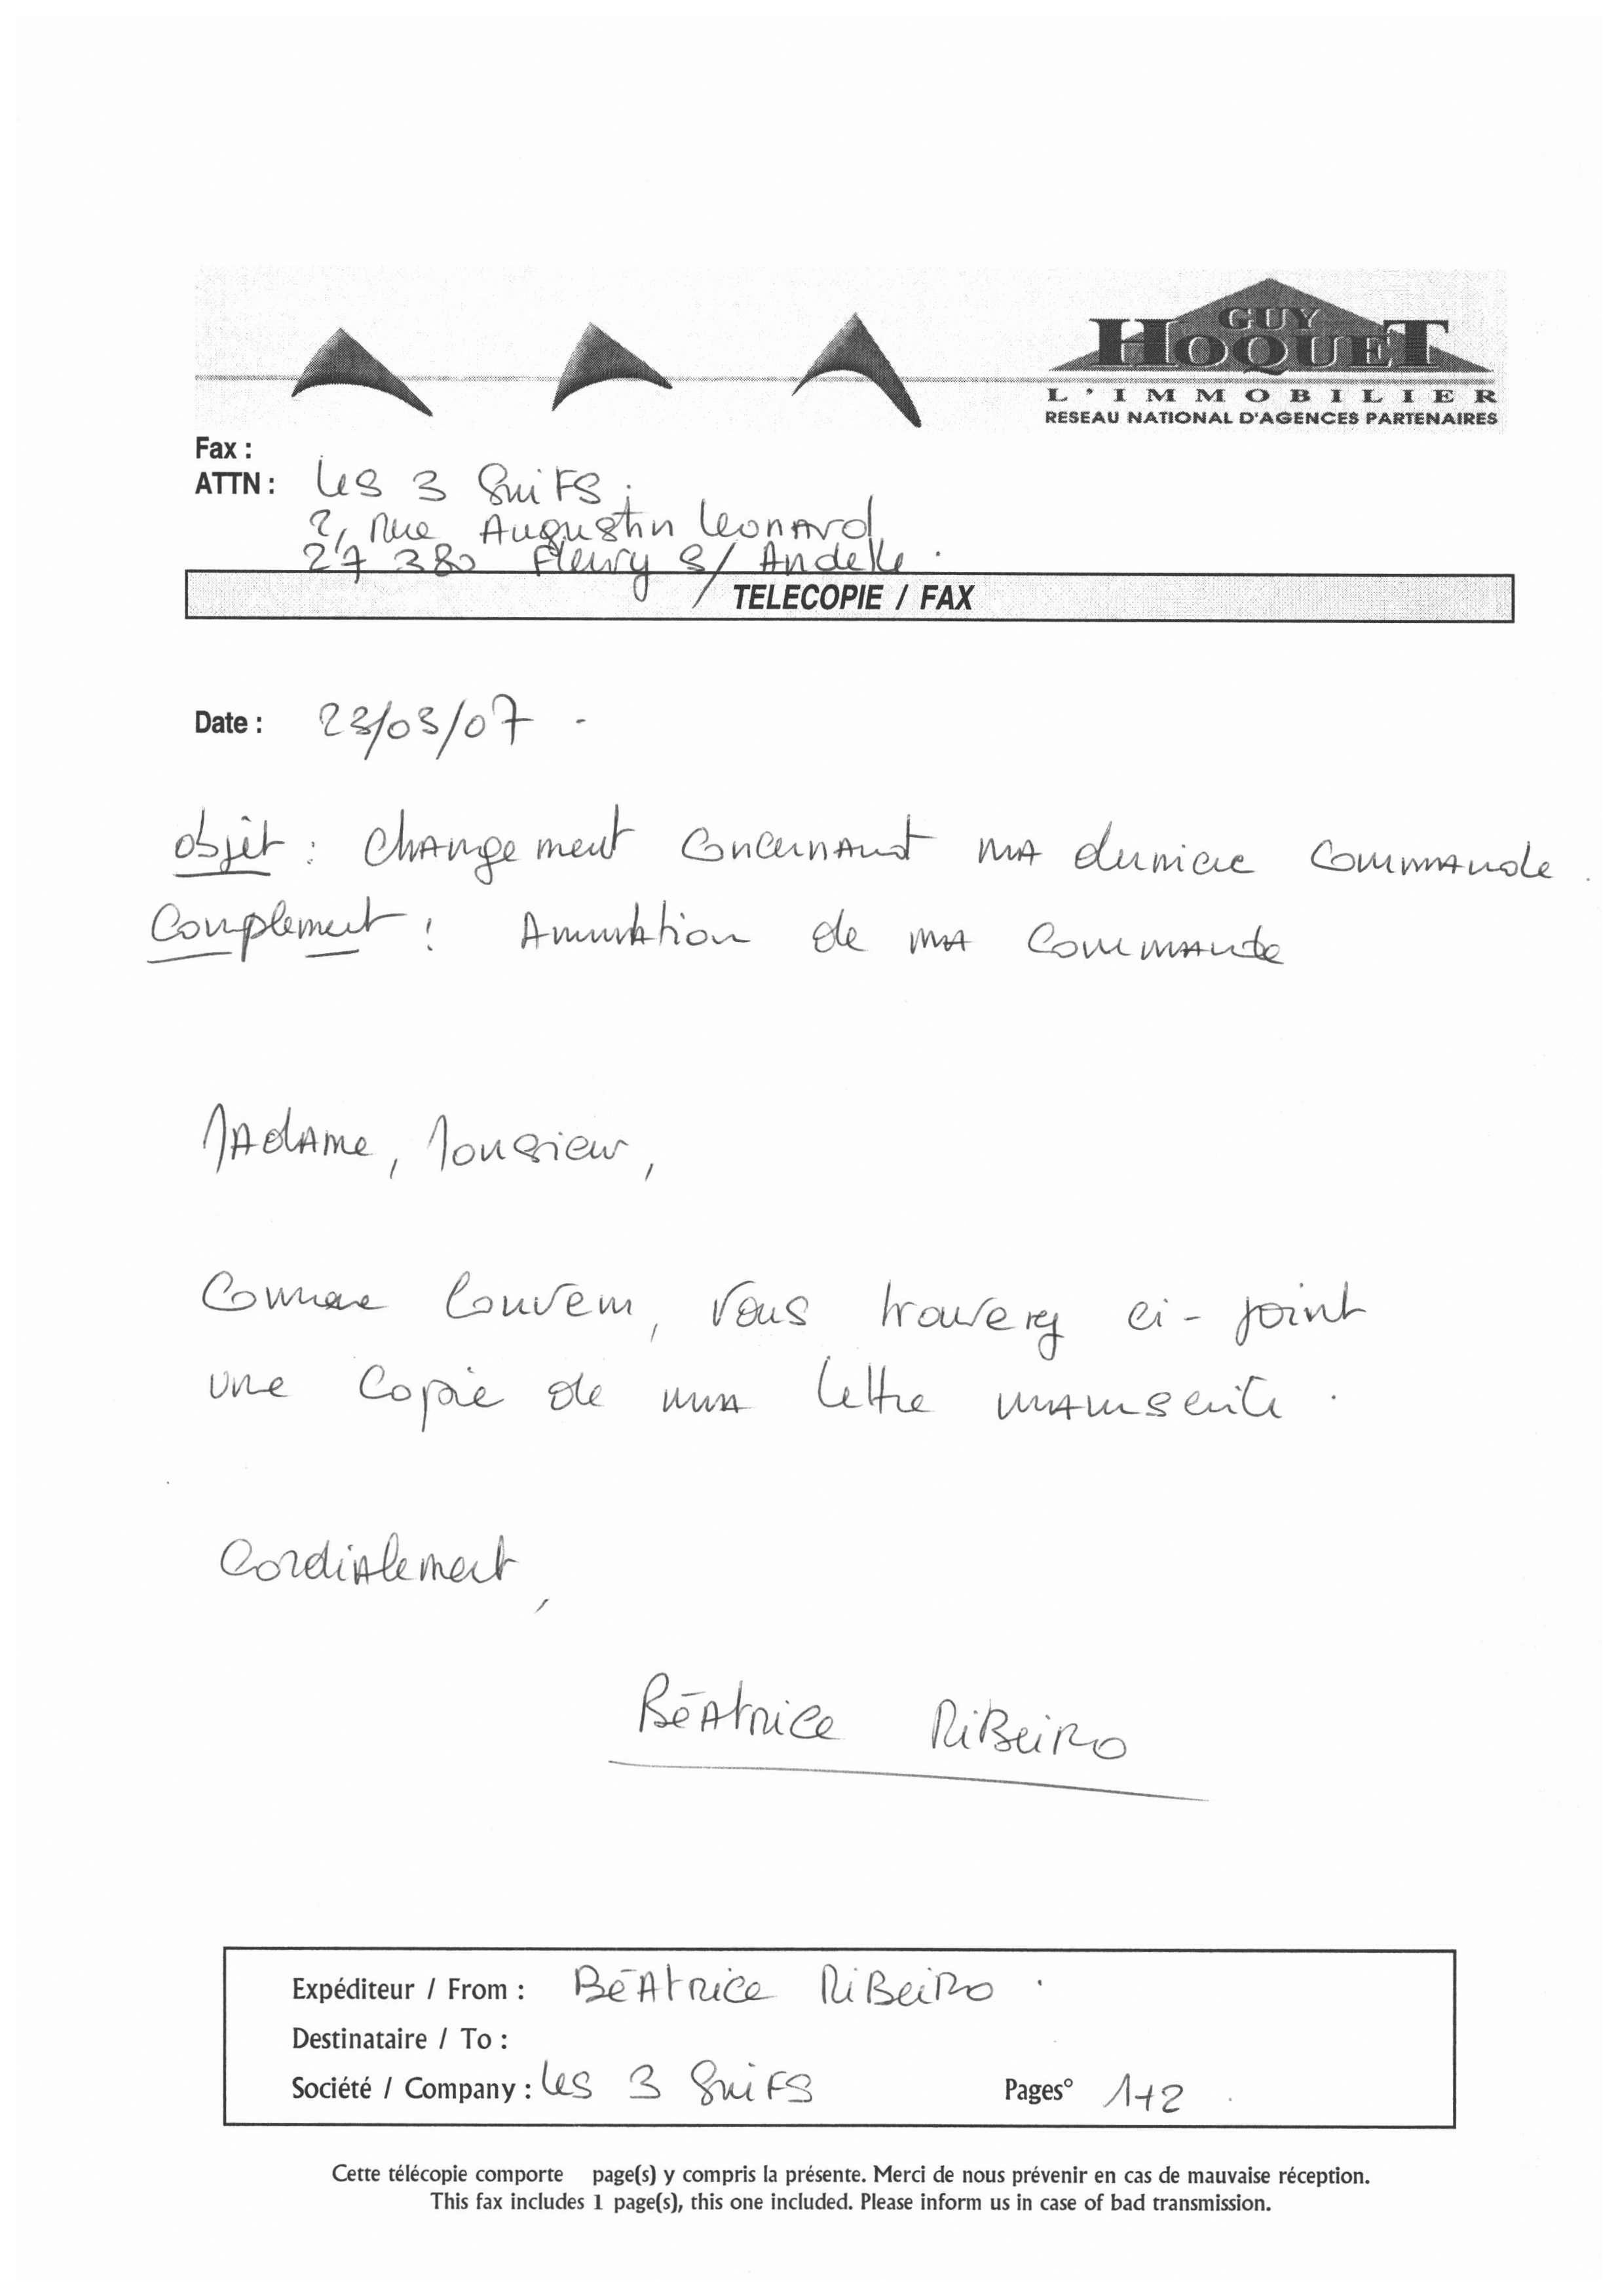 GUY
HOQUET
L'IMMOBILIER
RESEAU NATIONAL D'AGENCES PARTENAIRES
Fax :
ATTN : Les 3 SuiFS.
2, Rue Augustin Leonard
27 380 Fleury S/ Andelle.
TELECOPIE / FAX
Date : 23/03/07.
objet : Changement concernant ma derniere commande.
Complement : Annulation de ma commande
Madame, Monsieur,
Comme convenu, vous trouverez ci-joint
une copie de ma lettre manuscrite.
Cordialement,
BéAtrice RiBeiRo
Expéditeur / From : BéAtrice RiBeiRo.
Destinataire / To :
Société / Company : Les 3 SuiFS Pages° 1+2.
Cette télécopie comporte page(s) y compris la présente. Merci de nous prévenir en cas de mauvaise réception.
This fax includes 1 page(s), this one included. Please inform us in case of bad transmission.